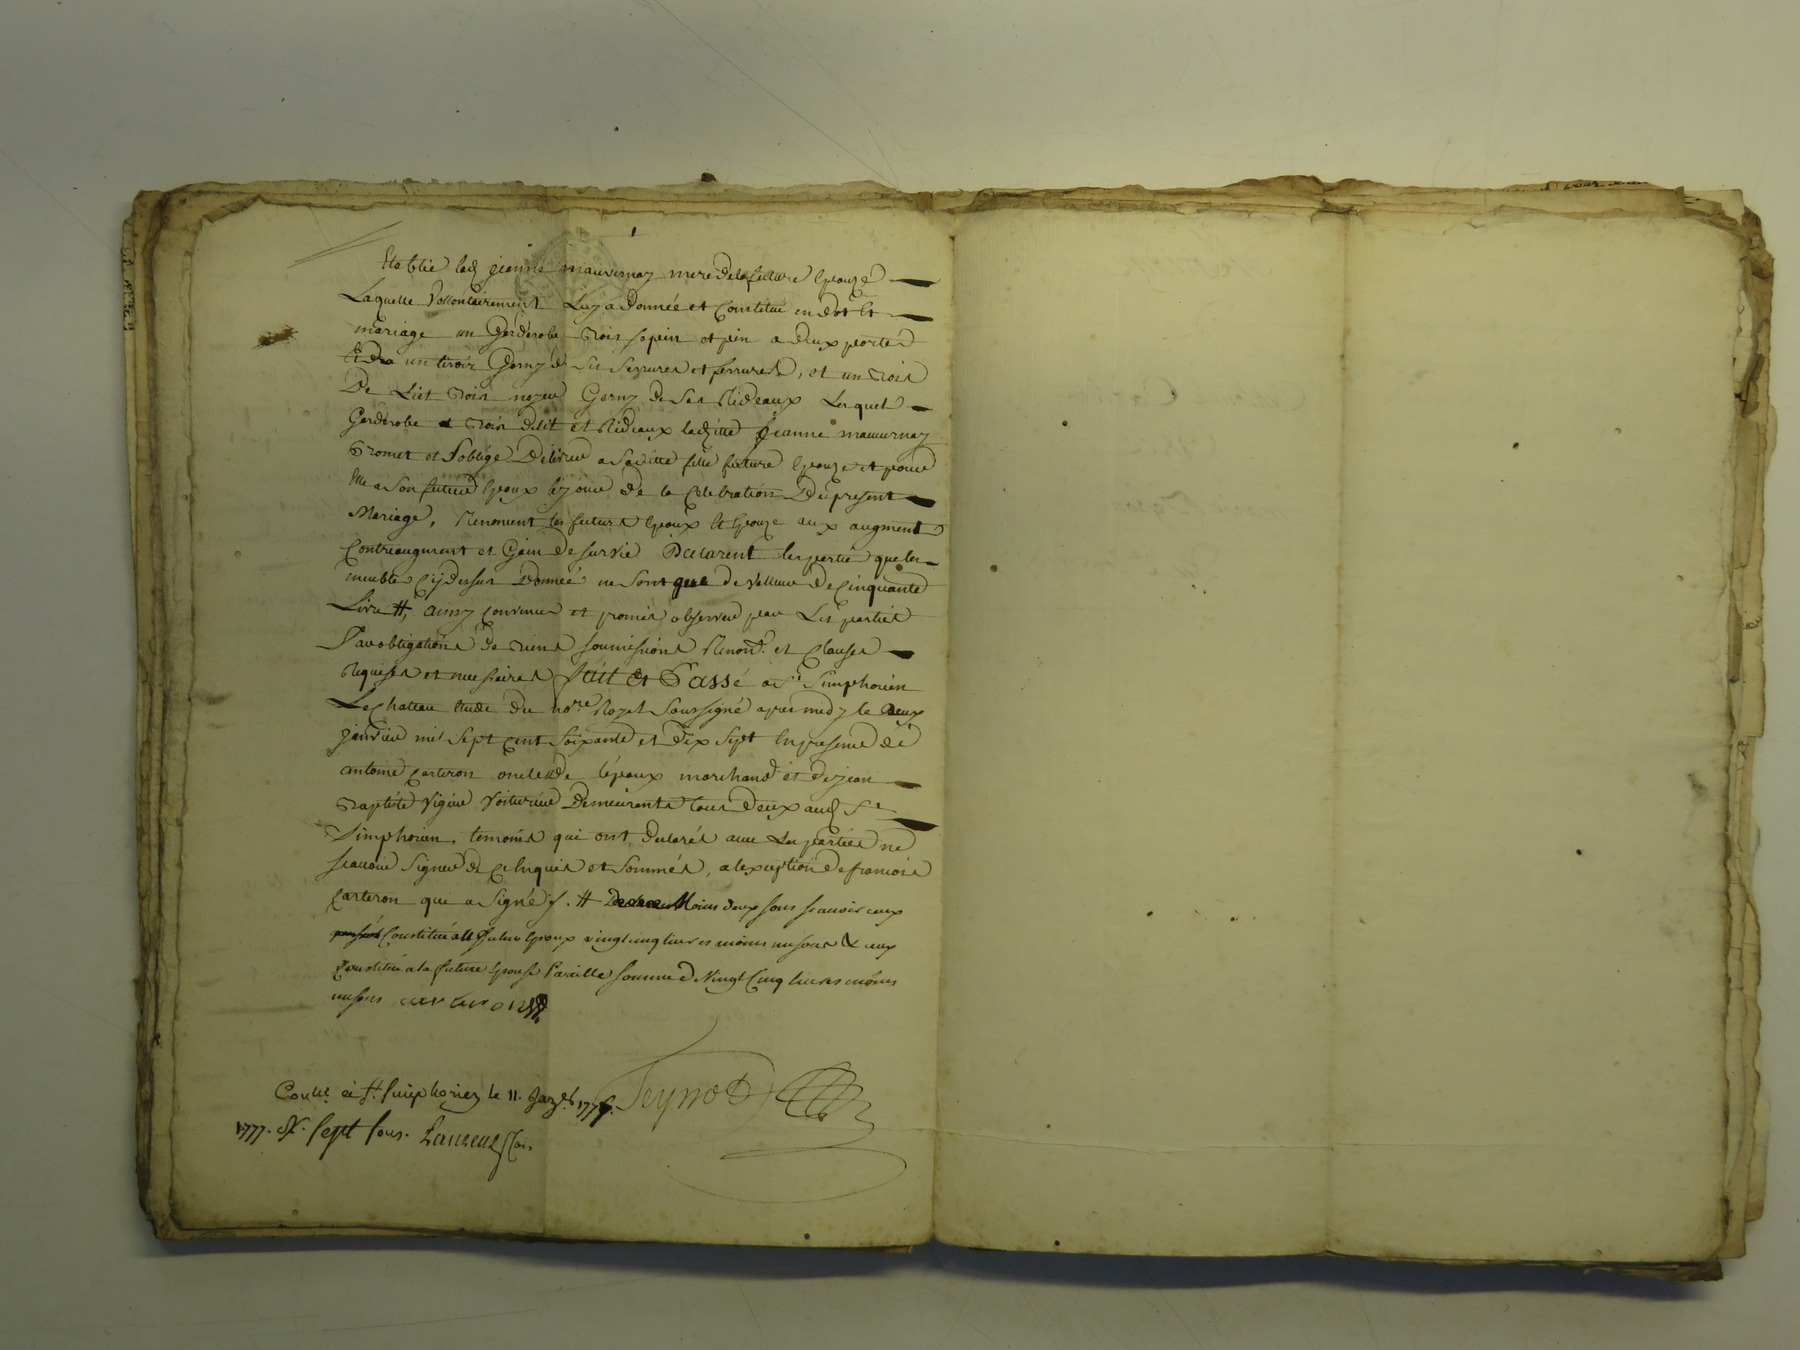 Etablie lad jeanne mauvernay mere de la future Epouze
Laquelle Vollontairement Luy a donnée et Constitué en dot Et
mariage un Garderobe Bois sapin et pin a deux portes
un tiroir Garny de ses serrures et ferrures, et un Bois
De Liet Bois noyeu Garny de Ses Rideaux Lesquel
Garderobe et Bois delit et Rideaux laditte Jeanne mauvernay
Promet et Soblige Delivreé a Saditte fille future Epouze et pour
Elle a Son future Epoux le jour de la Celebration Du present
Mariage, Renoncent les futurs Epoux et Epouze aux augment
Contreaugment et Gain de survie Declarent les partie que les
meubles Cy dessus Donneé ne Sont que de Valleur de Cinquante
Livre #, ainsy convenu et promis observer par Les parties
Par obligations de Biens soumissions Renon.on et Clauses
Requises et necessaires Fait Et Passé a St Simphorien
Le Chateau Etude du nore Royal Soussigné apres midy le deux
janvier mil Sept Cent Soixante et dix Sept En presence de
antoine Carteron oncle de l'epoux marchand et de jean
Baptiste Vigier Voiturier Demeurants tous deux aud St
Simphorien, temoins qui ont declarés avec Les parties ne
scavoir Signer de Ce Enquis et Sommés, a lexception de francois
Carteron qui a Signé /. # Moins deux sous scavoir ceux
Constitué au futur Epoux vingt cinq livres moins un sous & ceux
Constitué a la future Epouse Pareille Somme de Vingt Cinq livres moins
un sous carteron
Teynod
Conlé à St Simphorien le 11. Janer 1777.
1777. R. Sept sous. Laurenson